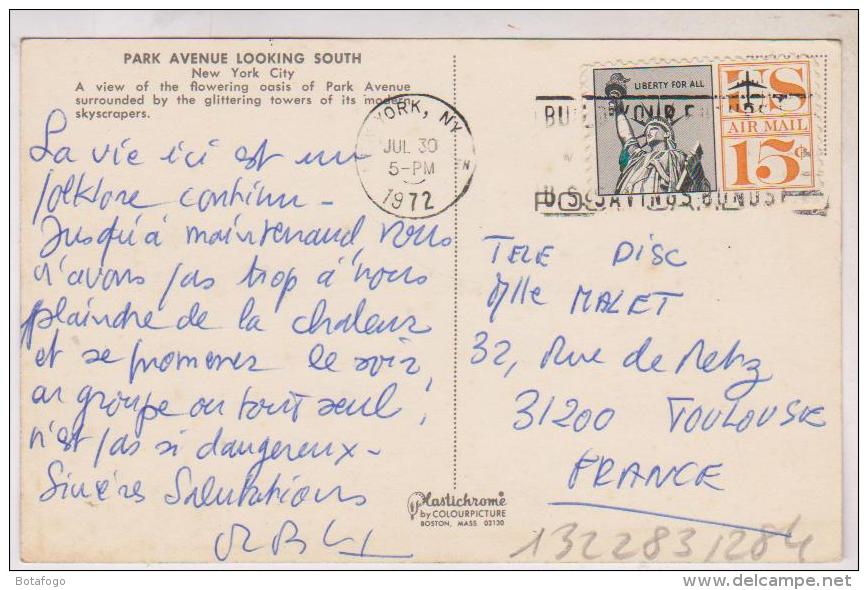 PARK AVENUE LOOKING SOUTH
New York City
A view of the flowering oasis of Park Avenue
surrounded by the glittering towers of its modern
skyscrapers.
La vie ici est un
folklore continu -
Jusqu'à maintenant, nous
n'avons pas trop à nous
plaindre de la chaleur
et se promener le soir,
en groupe ou tout seul,
n'est pas si dangereux -
Sincères Salutations
YORK, NY
JUL 30
5-PM
1972
LIBERTY FOR ALL
US
AIR MAIL
15¢
YOUR
U.S. SAVINGS BONDS
TELE DISC
Mlle MALET
32, Rue de Metz
31200 TOULOUSE
FRANCE
Plastichrome
by COLOURPICTURE
BOSTON, MASS 02130
1322831284
Botafogo
www.delcampe.net